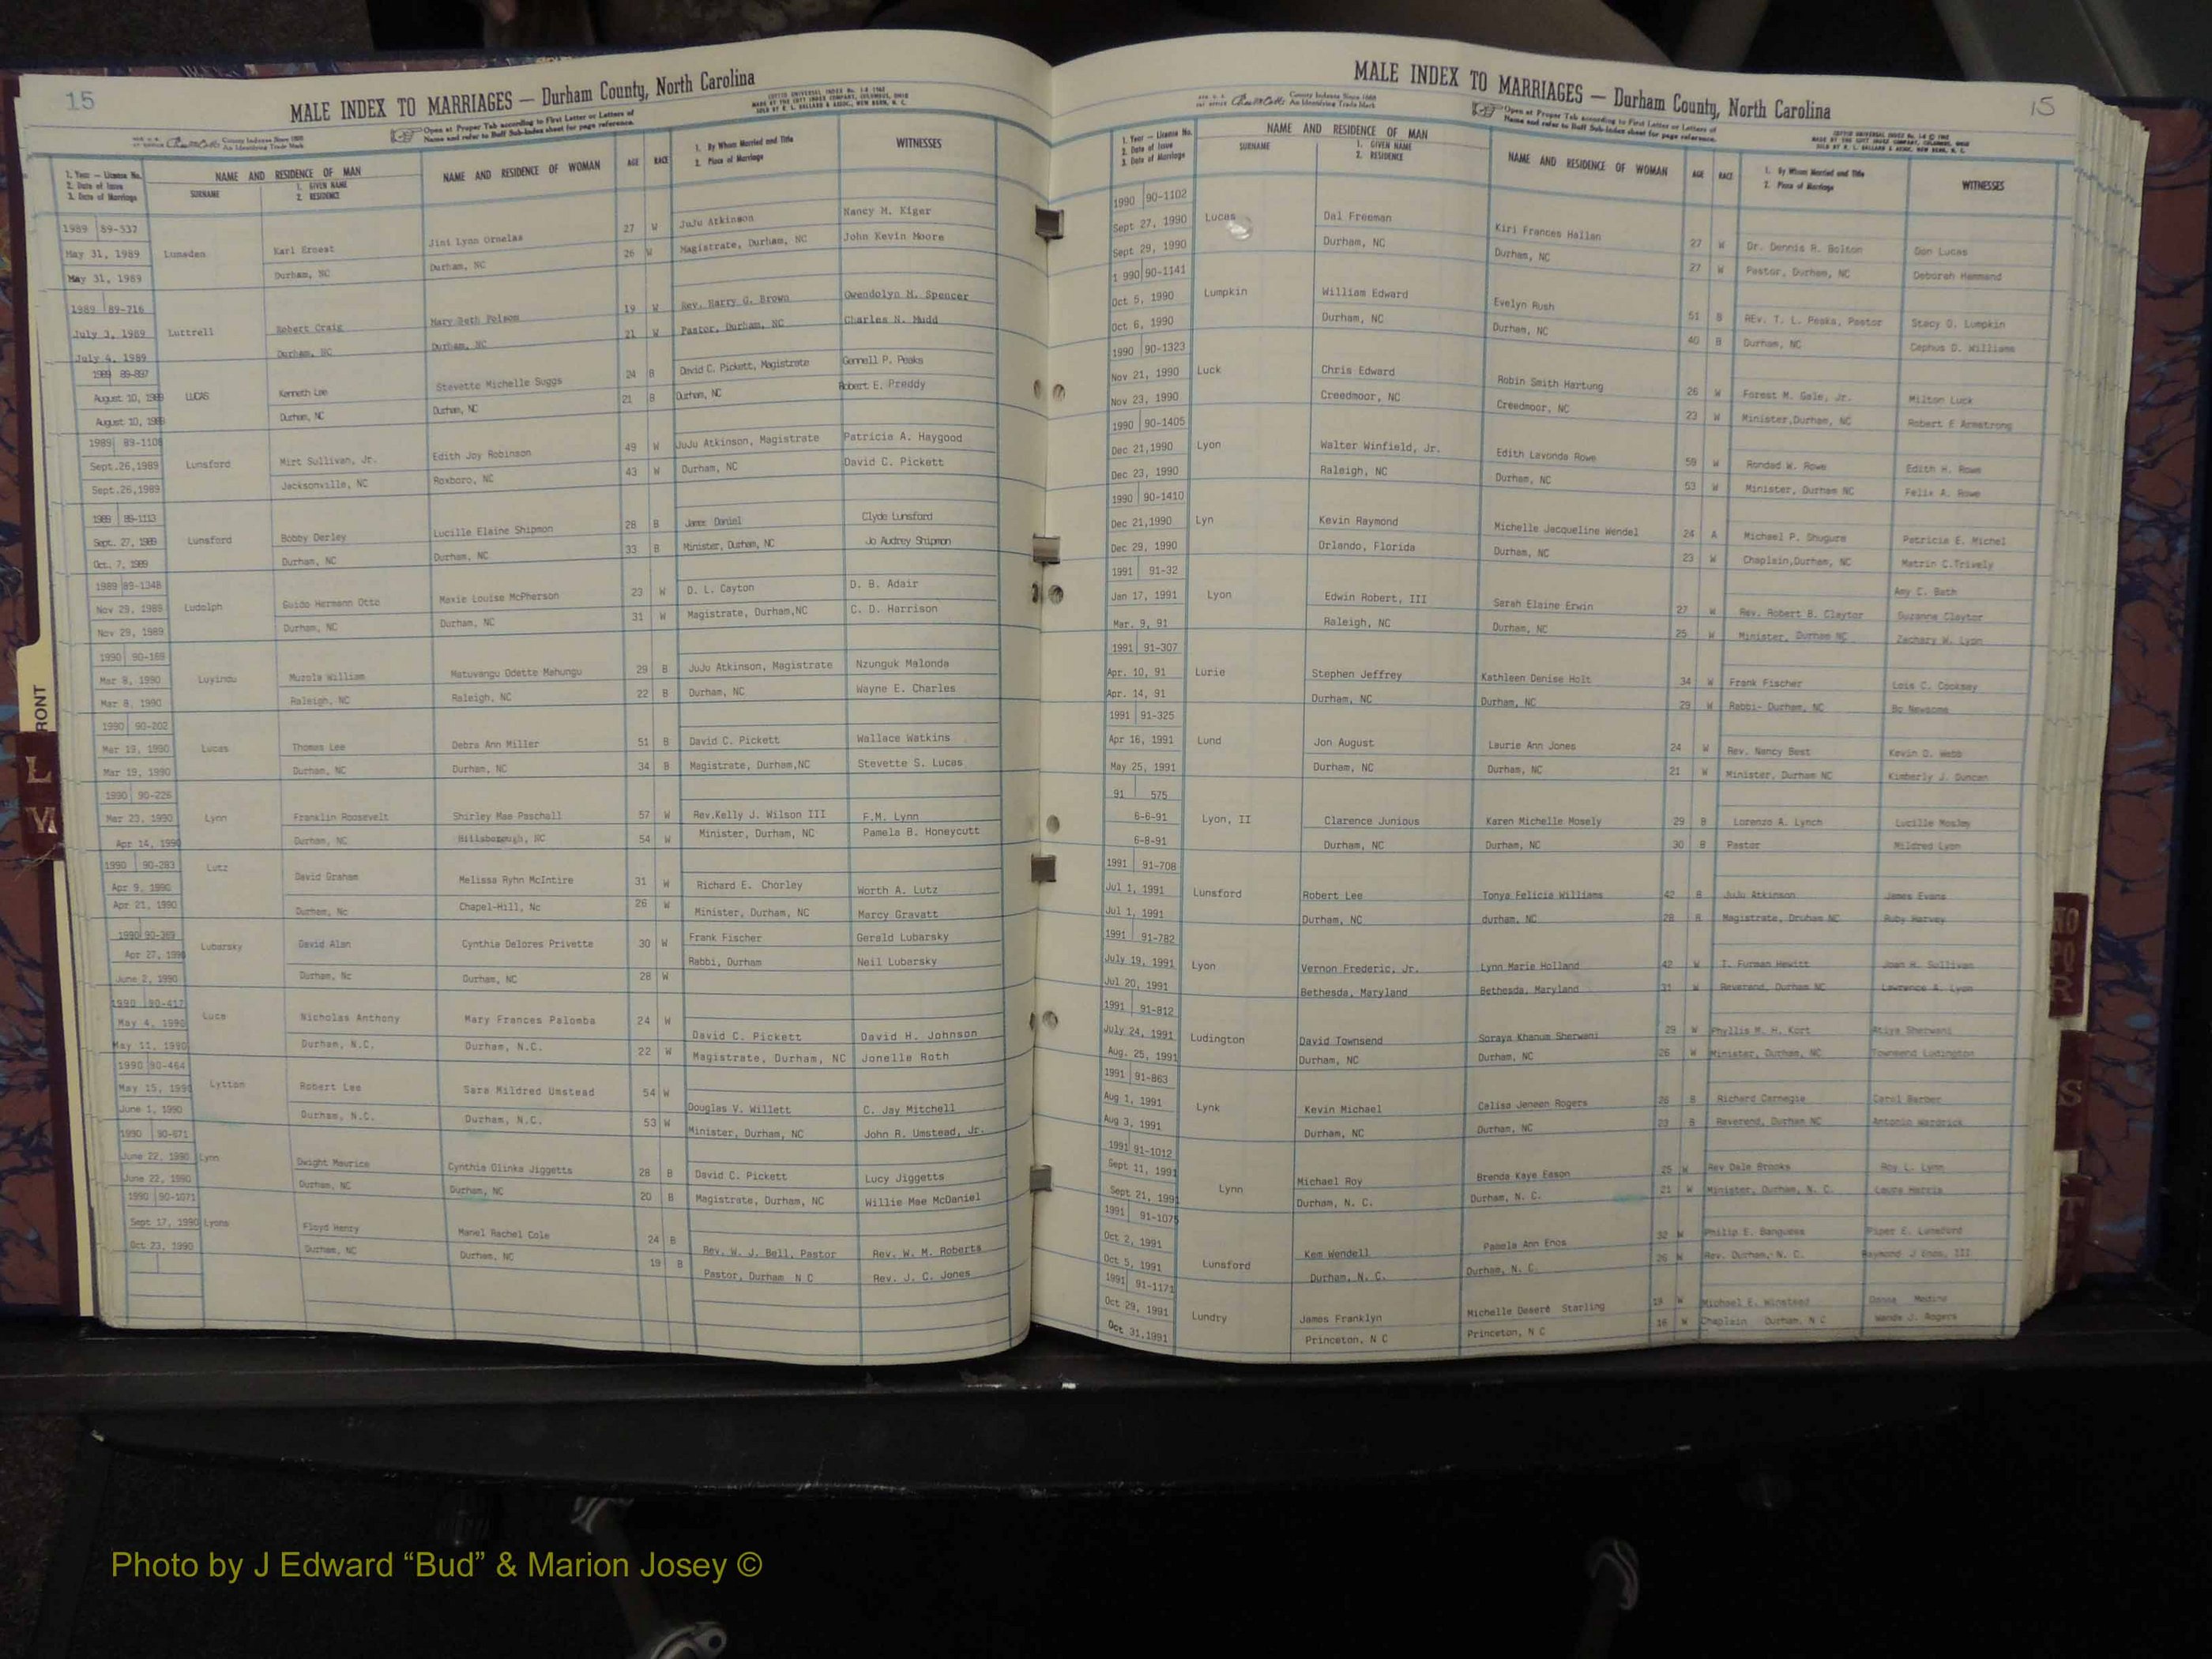 15
MALE INDEX TO MARRIAGES — Durham County, North Carolina
County Indexes Since 1888
An Identifying Trade Mark
Open at Proper Tab according to First Letter or Letters of
Name and refer to Buff Sub-Index sheet for page reference.
1. Year — License No.
2. Date of Issue
3. Date of Marriage
NAME AND RESIDENCE OF MAN
SURNAME
1. GIVEN NAME
2. RESIDENCE
NAME AND RESIDENCE OF WOMAN
AGE
RACE
1. By Whom Married and Title
2. Place of Marriage
WITNESSES
1989 89-537 27 W JuJu Atkinson Nancy M. Kiger
May 31, 1989 Lumsden Karl Ernest Jini Lynn Ornelas 26 W Magistrate, Durham, NC John Kevin Moore
May 31, 1989 Durham, NC Durham, NC
1989 89-716 19 W Rev. Harry G. Brown Gwendolyn M. Spencer
July 3, 1989 Luttrell Robert Craig Mary Beth Folsom 21 W Pastor, Durham, NC Charles N. Mudd
July 4, 1989 Durham, NC Durham, NC
1989 89-897 24 B David C. Pickett, Magistrate Gennell P. Peaks
August 10, 1989 LUCAS Kenneth Lee Stevette Michelle Suggs 21 B Durham, NC Robert E. Preddy
August 10, 1989 Durham, NC Durham, NC
1989 89-1108 49 W JuJu Atkinson, Magistrate Patricia A. Haygood
Sept.26,1989 Lunsford Mirt Sullivan, Jr. Edith Joy Robinson 43 W Durham, NC David C. Pickett
Sept.26,1989 Jacksonville, NC Roxboro, NC
1989 89-1113 28 B James Daniel Clyde Lunsford
Sept. 27, 1989 Lunsford Bobby Derley Lucille Elaine Shipmon 33 B Minister, Durham, NC Jo Audrey Shipmon
Oct. 7, 1989 Durham, NC Durham, NC
1989 89-1348 23 W D. L. Cayton D. B. Adair
Nov 29, 1989 Ludolph Guido Hermann Otto Maxie Louise McPherson 31 W Magistrate, Durham,NC C. D. Harrison
Nov 29, 1989 Durham, NC Durham, NC
1990 90-169 29 B JuJu Atkinson, Magistrate Nzunguk Malonda
Mar 8, 1990 Luyindu Muzola William Matuvangu Odette Mahungu 22 B Durham, NC Wayne E. Charles
Mar 8, 1990 Raleigh, NC Raleigh, NC
1990 90-202
Mar 19, 1990 Lucas Thomas Lee Debra Ann Miller 51 B David C. Pickett Wallace Watkins
Mar 19, 1990 Durham, NC Durham, NC 34 B Magistrate, Durham,NC Stevette S. Lucas
1990 90-226
Mar 23, 1990 Lynn Franklin Roosevelt Shirley Mae Paschall 57 W Rev.Kelly J. Wilson III F.M. Lynn
Apr 14, 1990 Durham, NC Hillsborough, NC 54 W Minister, Durham, NC Pamela B. Honeycutt
1990 90-283 Lutz
Apr 9, 1990 David Graham Melissa Ryhn McIntire 31 W Richard E. Chorley Worth A. Lutz
Apr 21, 1990 Durham, Nc Chapel-Hill, Nc 26 W Minister, Durham, NC Marcy Gravatt
1990 90-369 Lubarsky David Alan Cynthia Delores Privette 30 W Frank Fischer Gerald Lubarsky
Apr 27, 1990 Rabbi, Durham Neil Lubarsky
June 2, 1990 Durham, Nc Durham, NC 28 W
1990 90-417 Luce Nicholas Anthony Mary Frances Palomba 24 W
May 4, 1990 David C. Pickett David H. Johnson
May 11, 1990 Durham, N.C. Durham, N.C. 22 W Magistrate, Durham, NC Jonelle Roth
1990 90-464
May 15, 1990 Lytton Robert Lee Sara Mildred Umstead 54 W Douglas V. Willett C. Jay Mitchell
June 1, 1990 Durham, N.C. Durham, N.C. 53 W Minister, Durham, NC John R. Umstead, Jr.
1990 90-671
June 22, 1990 Lynn Dwight Maurice Cynthia Olinka Jiggetts 28 B David C. Pickett Lucy Jiggetts
June 22, 1990 Durham, NC Durham, NC 20 B Magistrate, Durham, NC Willie Mae McDaniel
1990 90-1071
Sept 17, 1990 Lyons Floyd Henry Manel Rachel Cole 24 B Rev. W. J. Bell, Pastor Rev. W. M. Roberts
Oct 23, 1990 Durham, NC Durham, NC 19 B Pastor, Durham N C Rev. J. C. Jones
MALE INDEX TO MARRIAGES — Durham County, North Carolina
15
County Indexes Since 1888
An Identifying Trade Mark
Open at Proper Tab according to First Letter or Letters of
Name and refer to Buff Sub-Index sheet for page reference.
1. Year — License No.
2. Date of Issue
3. Date of Marriage
NAME AND RESIDENCE OF MAN
SURNAME
1. GIVEN NAME
2. RESIDENCE
NAME AND RESIDENCE OF WOMAN
AGE
RACE
1. By Whom Married and Title
2. Place of Marriage
WITNESSES
1990 90-1102
Sept 27, 1990 Lucas Dal Freeman Kiri Frances Hallan 27 W Dr. Dennis R. Bolton Dan Lucas
Sept 29, 1990 Durham, NC Durham, NC 27 W Pastor, Durham, NC Deborah Hammend
1 990 90-1141
Oct 5, 1990 Lumpkin William Edward Evelyn Rush 51 B REv. T. L. Peaks, Pastor Stacy O. Lumpkin
Oct 6, 1990 Durham, NC Durham, NC 40 B Durham, NC Cephus D. Williams
1990 90-1323
Nov 21, 1990 Luck Chris Edward Robin Smith Hartung 26 W Forest M. Gale, Jr. Milton Luck
Nov 23, 1990 Creedmoor, NC Creedmoor, NC 23 W Minister,Durham, NC Robert E Armstrong
1990 90-1405
Dec 21,1990 Lyon Walter Winfield, Jr. Edith Lavonda Rowe 59 W Rondad W. Rowe Edith H. Rowe
Dec 23, 1990 Raleigh, NC Durham, NC 53 W Minister, Durham NC Felix A. Rowe
1990 90-1410
Dec 21,1990 Lyn Kevin Raymond Michelle Jacqueline Wendel 24 A Michael P. Shugura Patricia E. Michel
Dec 29, 1990 Orlando, Florida Durham, NC 23 W Chaplain,Durham, NC Matrin C.Trively
1991 91-32 Amy C. Bath
Jan 17, 1991 Lyon Edwin Robert, III Sarah Elaine Erwin 27 W Rev. Robert B. Claytor Suzanne Claytor
Mar. 9, 91 Raleigh, NC Durham, NC 25 W Minister, Durham NC Zachary W. Lyon
1991 91-307
Apr. 10, 91 Lurie Stephen Jeffrey Kathleen Denise Holt 34 W Frank Fischer Lois C. Cooksey
Apr. 14, 91 Durham, NC Durham, NC 29 W Rabbi- Durham, NC Bo Newsome
1991 91-325
Apr 16, 1991 Lund Jon August Laurie Ann Jones 24 W Rev. Nancy Best Kevin D. Webb
May 25, 1991 Durham, NC Durham, NC 21 W Minister, Durham NC Kimberly J. Duncan
91 575
6-6-91 Lyon, II Clarence Junious Karen Michelle Mosely 29 B Lorenzo A. Lynch Lucille
6-8-91 Durham, NC Durham, NC 30 B Pastor Mildred Lyon
1991 91-708
Jul 1, 1991 Lunsford Robert Lee Tonya Felicia Williams 42 B JuJu Atkinson James Evans
Jul 1, 1991 Durham, NC durham, NC 28 B Magistrate, Druham NC Ruby Harvey
1991 91-782
July 19, 1991 Lyon Vernon Frederic, Jr. Lynn Marie Holland 42 W T. Furman Hewitt Joan H. Sullivan
Jul 20, 1991 Bethesda, Maryland Bethesda, Maryland 31 W Reverend, Durham NC Lawrence A. Lyon
1991 91-812
July 24, 1991 Ludington David Townsend Soraya Khanum Sherwani 29 W Phyllis M. H. Kort Atiya Sherwani
Aug. 25, 1991 Durham, NC Durham, NC 26 W Minister, Durham, NC Townsend Ludington
1991 91-863
Aug 1, 1991 Lynk Kevin Michael Calisa Jeneen Rogers 26 B Richard Carnegie Carol Barber
Aug 3, 1991 Durham, NC Durham, NC 23 B Reverend, Durham NC Antonio
1991 91-1012
Sept 11, 1991 Lynn Michael Roy Brenda Kaye Eason 25 W Rev Dale Brooks Roy L. Lynn
Sept 21, 1991 Durham, N. C. Durham, N. C. 21 W Minister, Durham, N. C. Laura Harris
1991 91-1075
Oct 2, 1991 Kem Wendell Pamela Ann Enos 32 W Philip E. Banguess Piper E. Lunsford
Oct 5, 1991 Lunsford Durham, N. C. Durham, N. C. 26 W Rev. Durham, N. C. Raymond J Enos, III
1991 91-1171
Oct 29, 1991 Lundry James Franklyn Michelle Deseré Starling 19 W Michael E. Winstead Donna
Oct 31,1991 Princeton, N C Princeton, N C 16 W Chaplain Durham, N C Wanda J. Rogers
RONT
L
S
T
Photo by J Edward “Bud” & Marion Josey ©